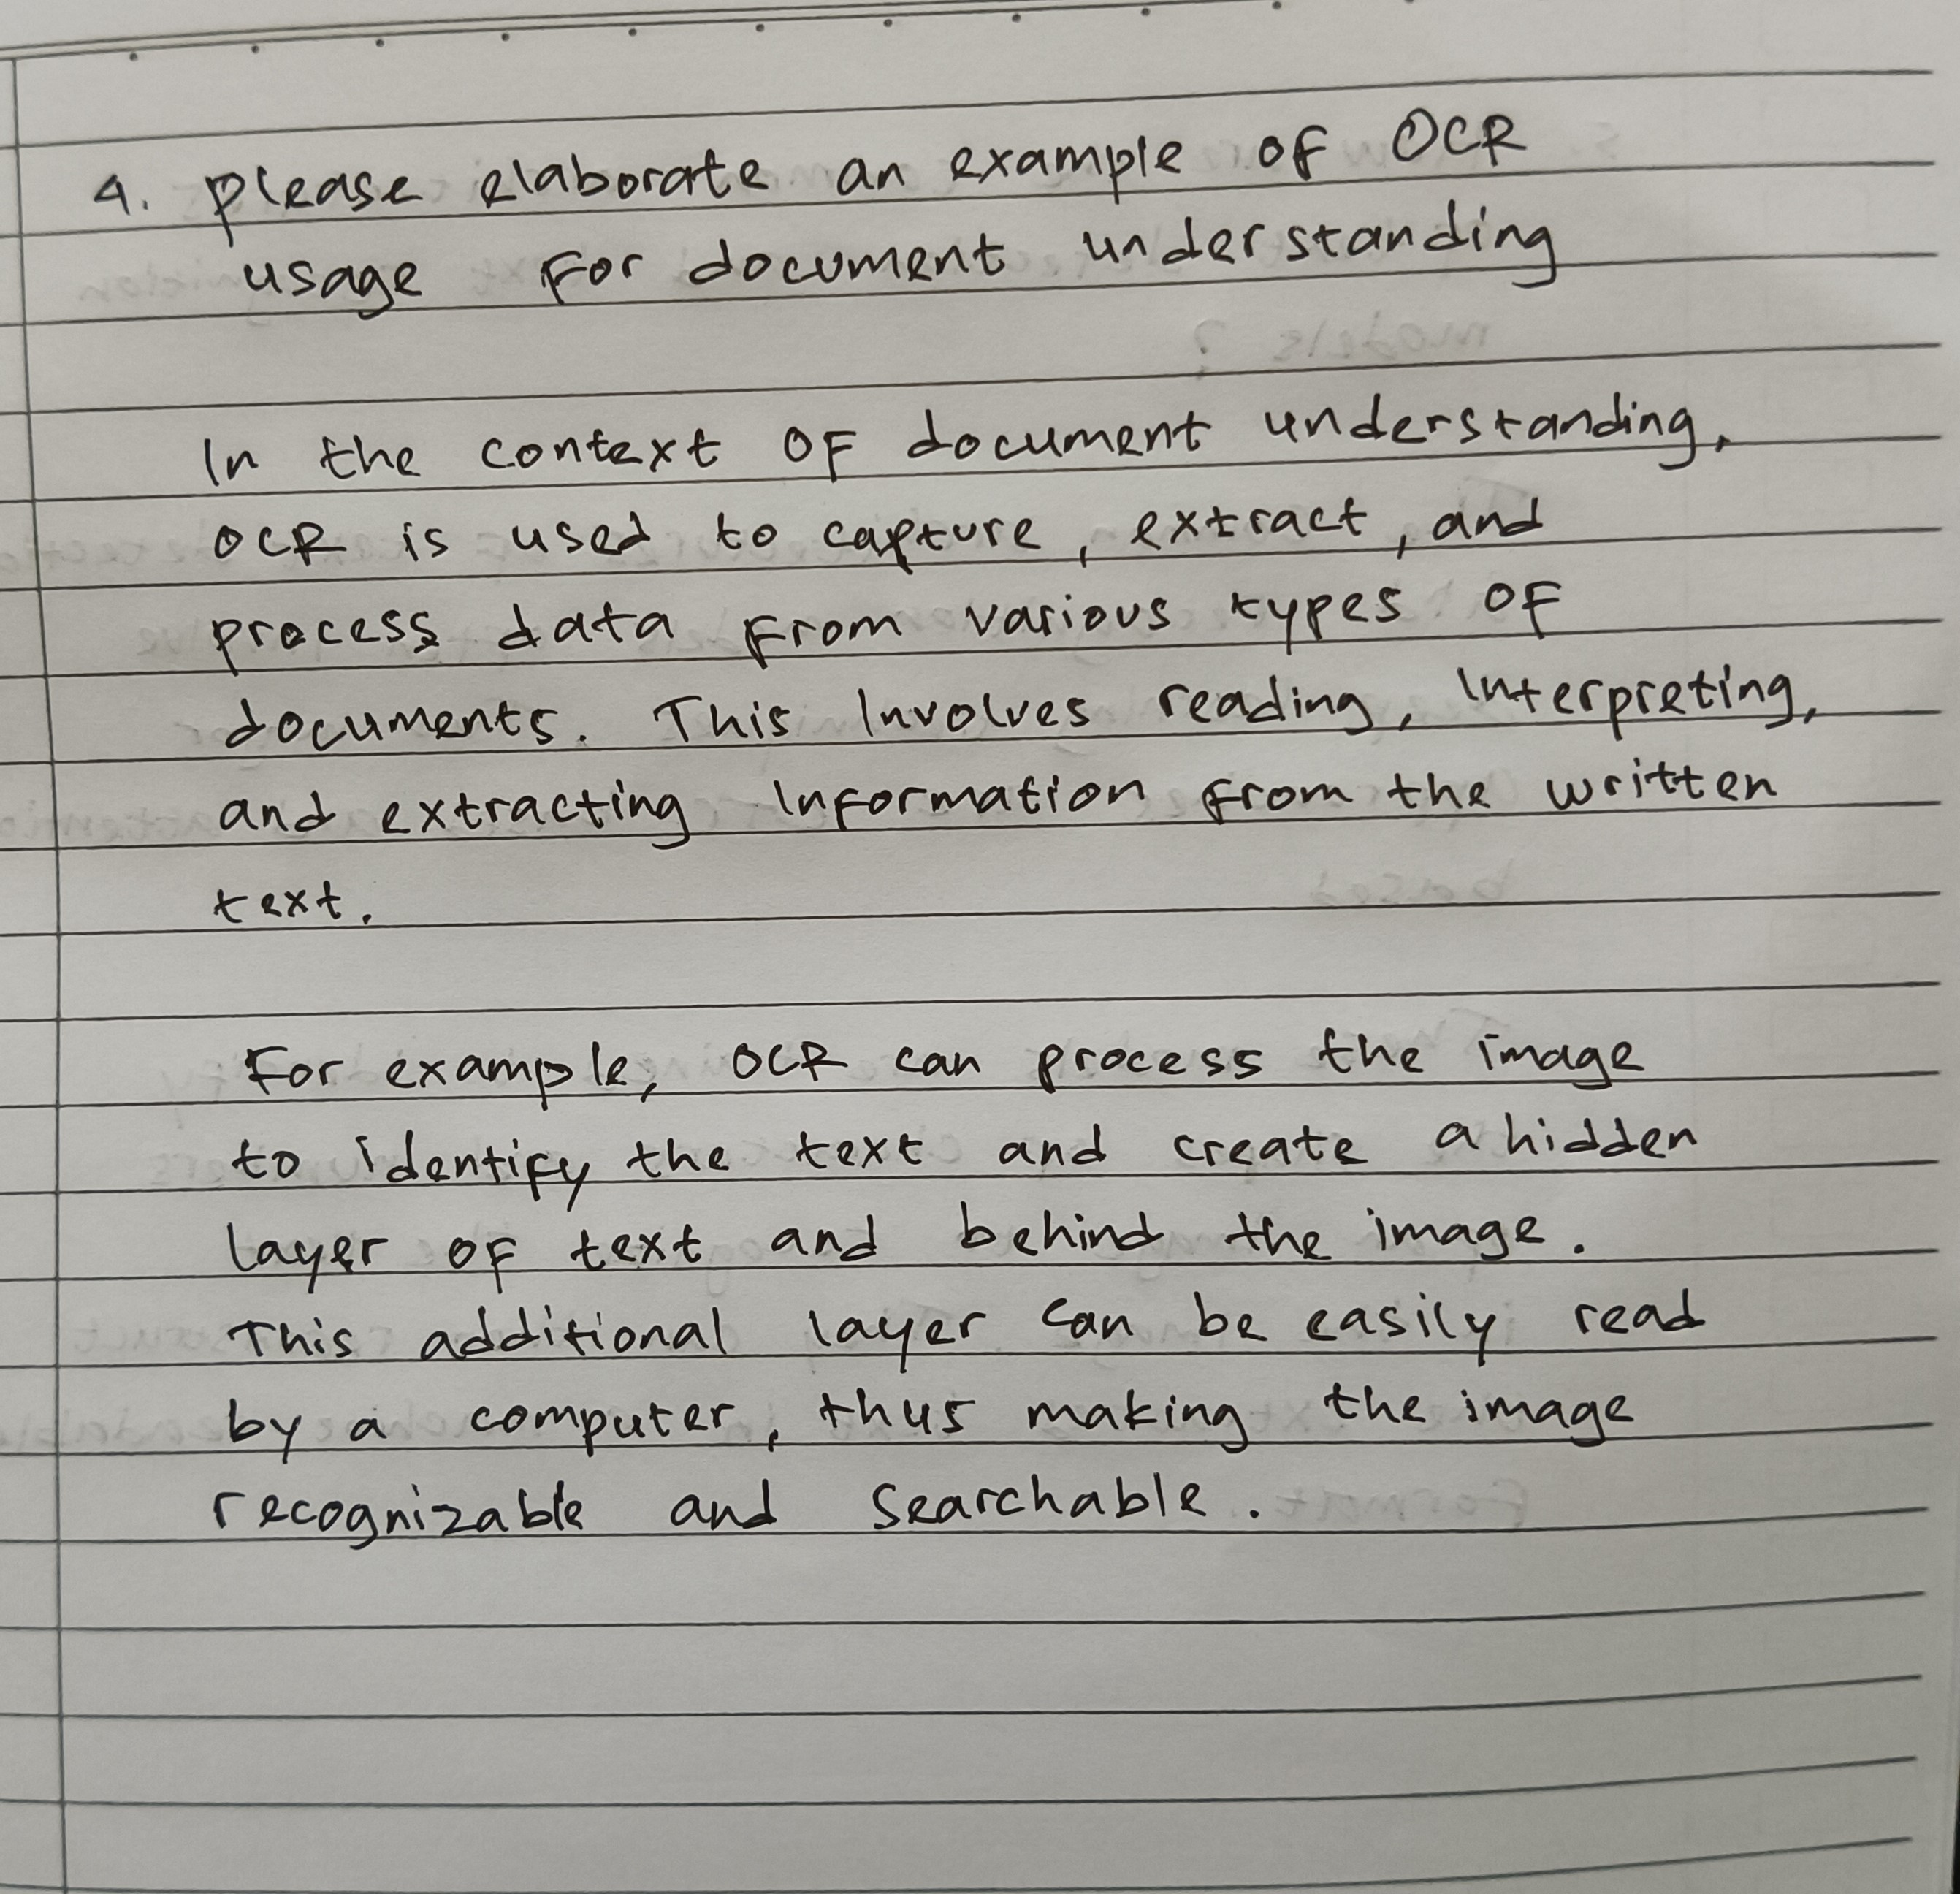 4. please elaborate an example of OCR
usage for document understanding
In the context of document understanding,
OCR is used to capture, extract, and
process data from various types of
documents. This Involves reading, Interpreting,
and extracting Information from the written
text.
For example, OCR can process the image
to identify the text and create a hidden
layer of text and behind the image.
This additional layer can be easily read
by a computer, thus making the image
recognizable and searchable.